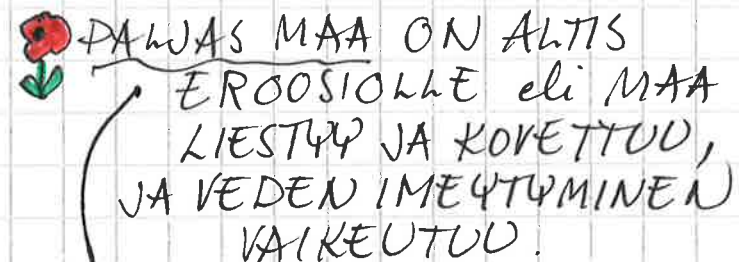 PALJAS MAA ON ALTIS
EROOSIOLLE eli MAA
LIESTYY JA KOVETTUU,
JA VEDEN IMEYTYMINEN
VAIKEUTUU.